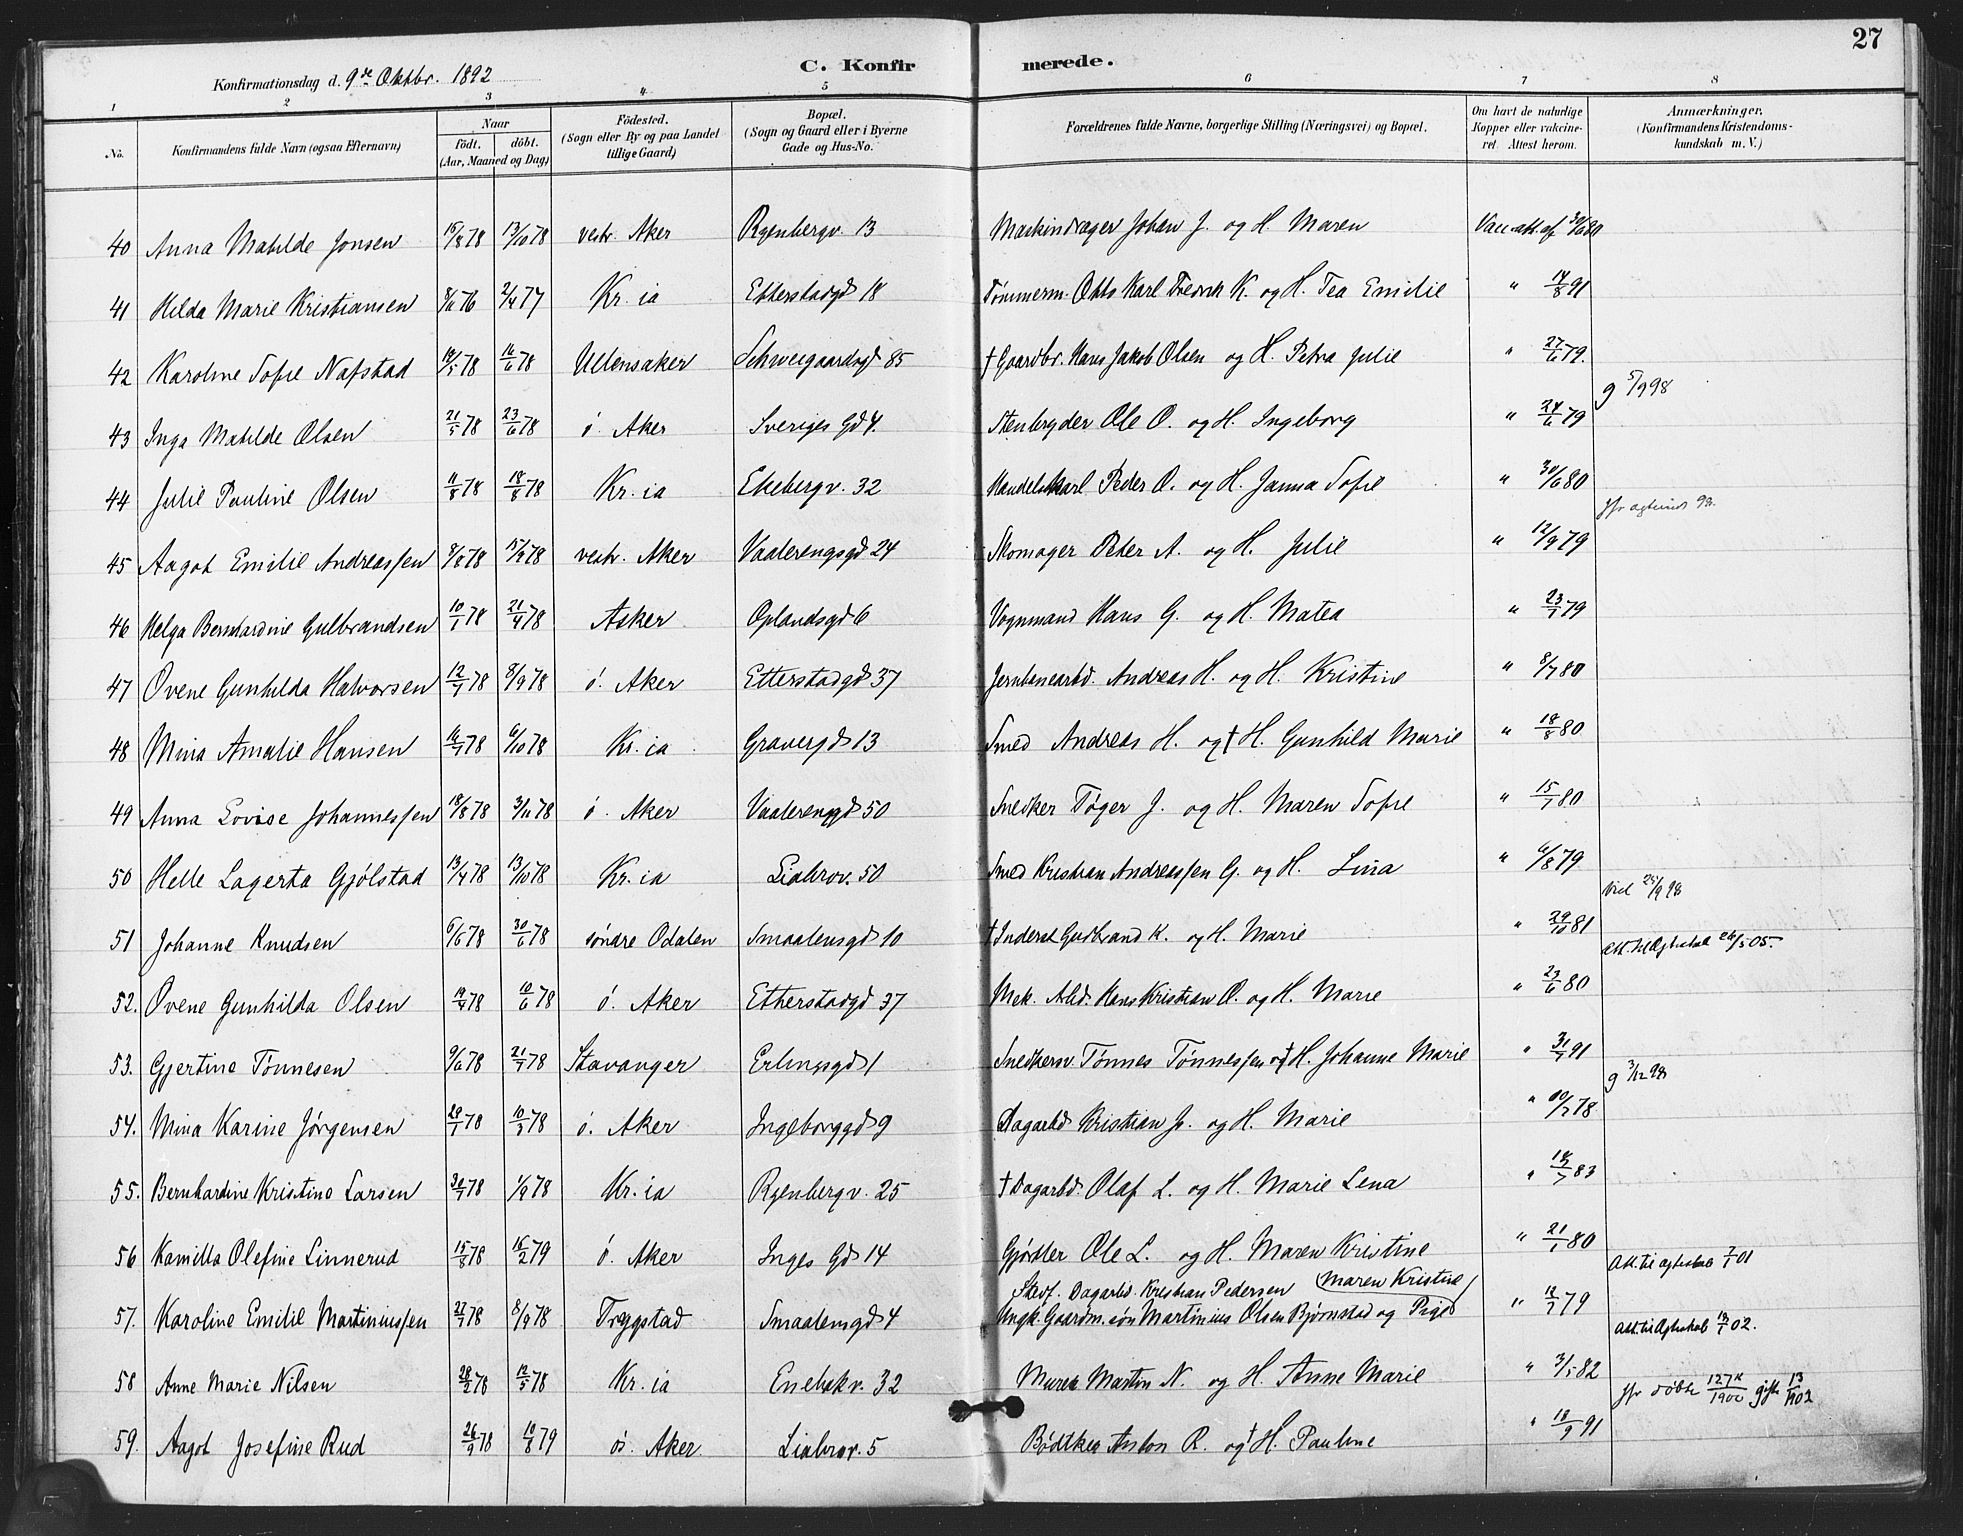 27
Konfirmationsdag d. 9de Oktbr. 1892 C. Konfirmerede.
1 2 3 4 5 6 7 8
No. Konfirmandens fulde Navn (ogsaa Efternavn) Naar født. døbt. (Aar, Maaned og Dag) Fødested. (Sogn eller By og paa Landet tillige Gaard) Bopæl. (Sogn og Gaard eller i Byerne Gade og Hus-No. Forældrenes fulde Navne, borgerlige Stilling (Næringsvei) og Bopæl. Om havt de naturlige Kopper eller vakcineret. Attest herom. Anmærkninger. (Konfirmandens Kristendomskundskab m. V.)
40 Anna Matilde Jonsen 15/8 78 13/10 78 vestr. Aker Ryenbergv. 13 Maskindræger Johan J. og H. Maren Vacc.att. af 30/6 80
41 Hilda Marie Kristiansen 8/11 76 2/4 77 Kr.ia Etterstadgd 18 Tømmerm. Otto Karl Fredrik K. og H. Tea Emilie " 14/8 91
42 Karoline Sofie Nafstad 19/5 78 16/6 78 Ullensaker Schweigaardsgd 85 † Gaardbr. Hans Jakob Olsen og H. Petra Julie " 27/6 79.
g 5/9 98
43 Inga Matilde Olsen 21/5 78 23/6 78 ö. Aker Sveriges Gd 4. Stenbryder Ole O. og H. Ingeborg " 24/6 79
44 Julie Pauline Olsen 11/8 78 18/8 78 Kr.ia Ekebergv. 32 Handelskarl Peder O. og H. Janna Sofie " 30/6 80
45 Aagot Emilie Andreassen 8/8 78 15/9 78 vestr. Aker Vaalerengsgd 24 Skomager Peter A. og H. Julie " 12/9 79
46 Helga Bernhardine Gulbrandsen 10/1 78 21/4 78 Asker Oplandsgd 6 Vognmand Hans G. og H. Matea " 23/7 79
47 Ovene Gunhilda Halvorsen 12/7 78 8/9 78 ö. Aker Etterstadgd 37 Jernbanearbd. Andreas H. og H. Kristine " 8/7 80
48 Mina Amalie Hansen 16/7 78 6/10 78 Kr.ia Gravergd 13 Smed Andreas H. og † H. Gunhild Marie " 18/8 80
49 Anna Lovise Johannessen 18/8 78 3/11 78 ö. Aker Vaalerenggd 50 Snedker Tøger J. og H. Maren Sofie " 15/7 80
50 Helle Lagerta Gjølstad 13/4 78 13/10 78 Kr.ia Liabrov. 50 Smed Kristian Andreassen G. og H. Lina " 6/8 79
Viel 25/9 98
51 Johanne Knudsen 6/6 78 30/6 78 söndre Odalen Smaalensgd 10 † Inderst Gudbrand K. og H. Marie " 29/10 81
att. til Ægteskab 26/5 05.
52. Ovene Gunhilda Olsen 19/4 78 10/6 78 ö. Aker Etterstadgd 37 Mek. Arbd. Hans Kristian O. og H. Marie " 23/6 80
53. Gjertine Tönnesen 9/6 78 21/7 78 Stavanger Erlingsgd 1 Snedkersv. Tönnes Tönnessen og † H. Johanne Marie " 31/7 91
g 3/12 98
54. Mina Karine Jörgensen 29/1 78 10/3 78 ö. Aker Ingeborggd 9 Dagarbd Kristian J. og H. Marie " 10/7 78
55. Bernhardine Kristine Larsen 30/7 78 1/9 78 Kr.ia Ryenbergv. 25 † Dagarbd. Olaf L. og H. Marie Lena " 18/7 83
56 Kamilla Olefine Linnerud 15/8 78 16/2 79 ö. Aker Inges Gd 14 Gjødtler Ole L. og H. Maren Kristine " 21/1 80
Att. til Ægteskab 7/1 01
Stedf. Dagarbd. Kristian Pedersen (Maren Kristine
57. Karoline Emilie Martiniussen 27/7 78 8/9 78 Trygstad Smaalensgd 4 Ungk. Gaardm. sön Martinius Olsen Bjørnstad og Pige " 12/7 79
Att. til Ægteskab 13/1 02.
58 Anne Marie Nilsen 28/2 78 12/5 78 Kr.ia Enebakv. 32 Murer Martin N. og H. Anne Marie " 3/5 82
59. Aagot Josefine Rud 26/9 78 10/8 79 ös. Aker Liabrov. 5 Bødtker Anton R. og † H. Pauline " 18/9 91